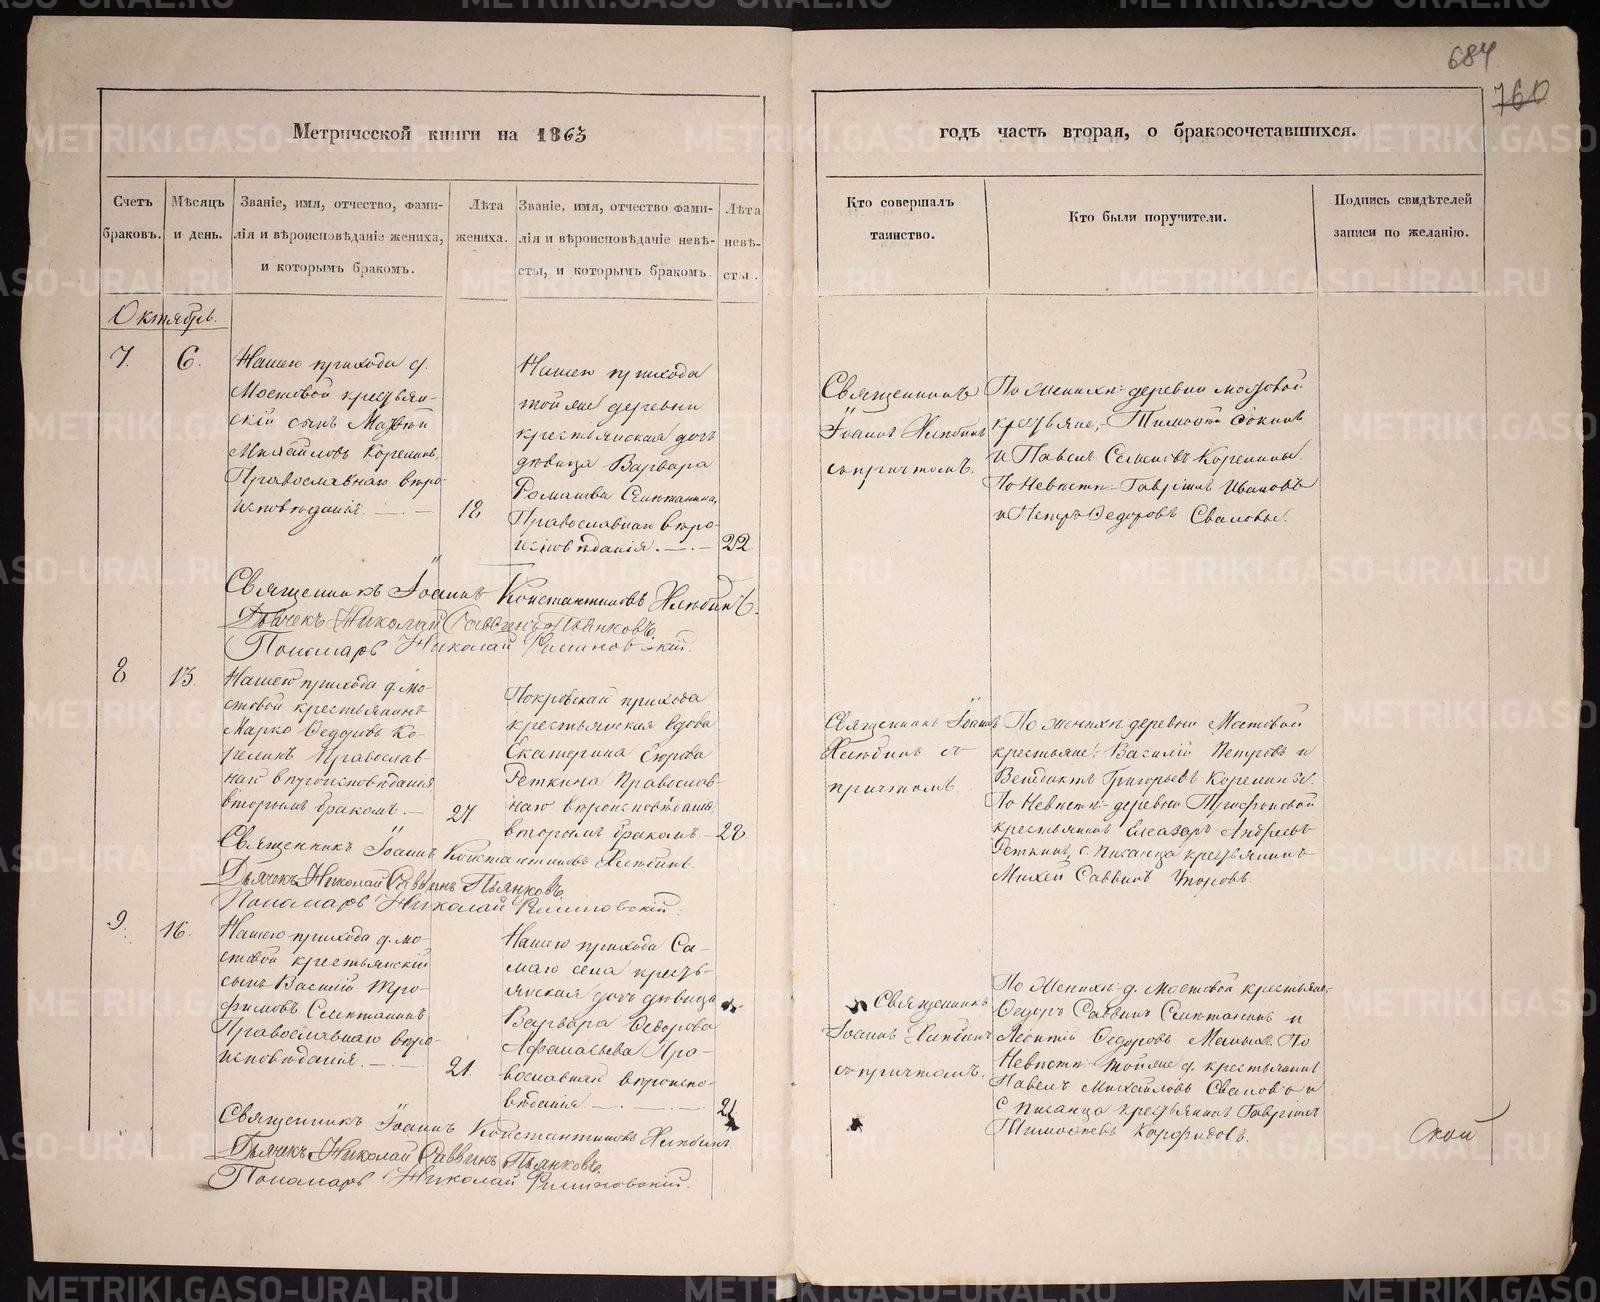 684
760
Метрической книги на 1863
годъ часть вторая, о бракосочетавшихся.
Счетъ браковъ.
Мѣсяцъ и день.
Званіе, имя, отчество, фами-
лія и вѣроисповѣданіе жениха,
и которымъ бракомъ.
Лѣта
жениха.
Званіе, имя, отчество фами-
лія и вѣроисповѣданіе невѣ-
сты, и которымъ бракомъ.
Лѣта
невѣ-
сты.
Кто совершалъ
таинство.
Кто были поручители.
Подпись свидѣтелей
записи по желанію.
Октябрь.
7.
6.
Нашего прихода д.
Мостовой крестьян-
скій сынъ Матѳій
Михайловъ Корелинъ,
Православнаго вѣро-
исповѣданія.
18
Нашего прихода
той же деревни
крестьянская дочь
дѣвица Варвара
Романова Селтанина,
Православнаго вѣро-
исповѣданія.
22
Священникъ
Іоаннъ Хлѣбинъ
съ причтомъ.
По Женихѣ: деревни мостовой
крестьяне,
и Павелъ Семеновъ Корелины.
По Невѣстѣ: Гавріилъ Ивановъ
и Петръ Ѳедоровъ Сваловы.
Священникъ Іоаннъ Константиновъ Хлѣбинъ.
Дьячекъ Николай Саввинъ Пьянковъ.
Пономарь Николай
8
13.
Нашего прихода д. мо-
стовой крестьянинъ
Марко Ѳедоровъ Ко-
релинъ Православ-
наго вѣроисповѣданія
вторымъ бракомъ.
27
Покровскаго прихода
крестьянская вдова
Екатерина Егорова
Реткина Православ-
наго вѣроисповѣданія,
вторымъ бракомъ.
28
Священникъ Іоаннъ
Хлѣбинъ съ
причтомъ.
По женихѣ: деревни Мостовой
крестьяне: Василій Петровъ и
Венедиктъ Григорьевъ Корелины.
По Невѣстѣ: деревни Трифоновой
крестьянинъ Елеазаръ Андреевъ
Реткинъ, с. Писанца крестьянинъ
Михей Саввинъ
Священникъ Іоаннъ Константиновъ Хлѣбинъ.
Дьячекъ Николай Саввинъ Пьянковъ.
Пономарь Николай
9.
16.
Нашего прихода д. мо-
стовой крестьянскій
сынъ Василій Тро-
фимовъ Селтанинъ
Православнаго вѣро-
исповѣданія.
21.
Нашего прихода Са-
маго села кресть-
янская дочь дѣвица
Варвара Ѳедорова
Афанасьева Пра-
вославнаго вѣроиспо-
вѣданія.
21
Священникъ
Іоаннъ Хлѣбинъ
съ причтомъ.
По Женихѣ: д. мостовой крестьяне,
Ѳедоръ Саввинъ Селтанинъ и
Леонтій Ѳедоровъ По
Невѣстѣ: той же д. крестьянинъ
Павелъ Михайловъ Сваловъ и
с. Писанца крестьянинъ Гавріилъ
Тимоѳеевъ
Священникъ Іоаннъ Константиновъ Хлѣбинъ.
Дьячекъ Николай Саввинъ Пьянковъ.
Пономарь Николай
METRIKI.GASO-URAL.RU